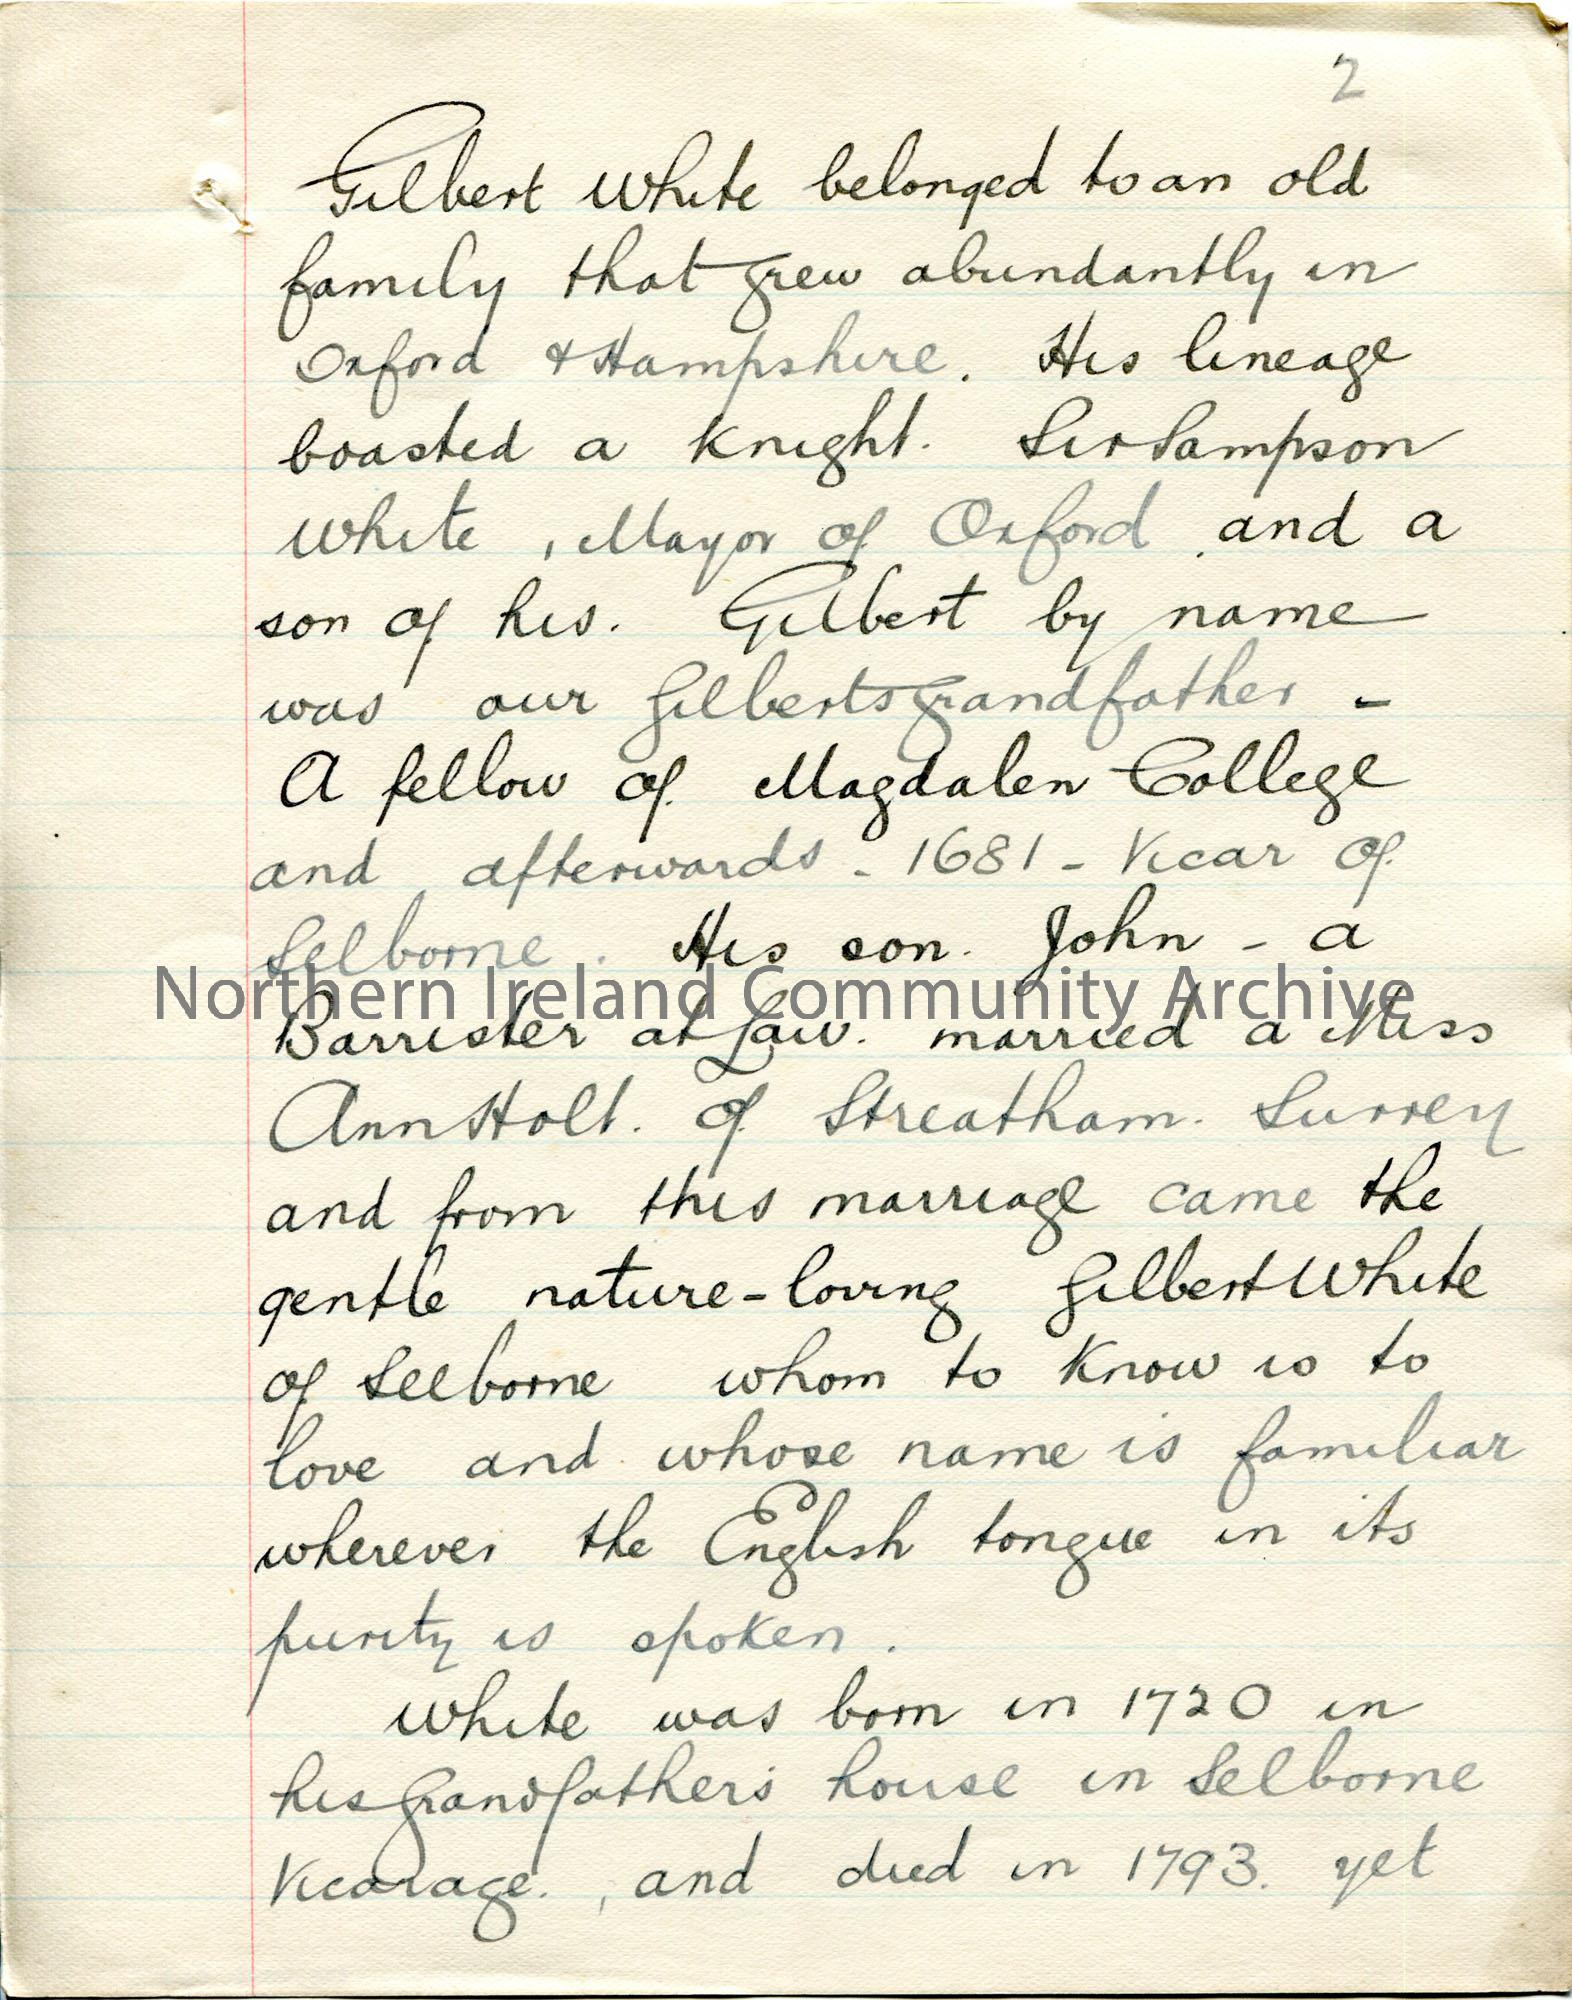 2
Gilbert White belonged to an old
family that grew abundantly in
Oxford & Hampshire. His lineage
boasted a Knight. Sir Sampson
White, Mayor of Oxford, and a
son of his. Gilbert by name
was our Gilberts grandfather -
A fellow of Magdalen College
and afterwards - 1681 - Vicar of
Selborne. His son. John - a
Northern Ireland Community Archive
Barrister at Law. married a Miss
Ann Holt. of Streatham. Surrey
and from this marriage came the
gentle nature-loving Gilbert White
of Selborne whom to Know is to
love and whose name is familiar
wherever the English tongue in its
purity is spoken.
White was born in 1720 in
his grandfather's house in Selborne
Vicarage., and died in 1793. yet